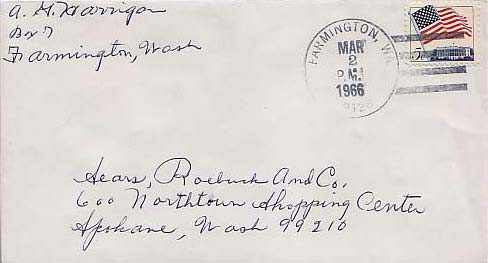 A. H. Harrigan
Box 7
Farmington, Wash
FARMINGTON, WA
MAR
2
P.M.
1966
99128
5c
Sears, Roebuck And Co.
600 Northtown Shopping Center
Spokane, Wash 99210